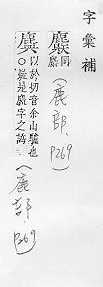 字彙補
同
(鹿部, P269)
以於切音余山驢也
〇疑是字之譌
(鹿部, P269)